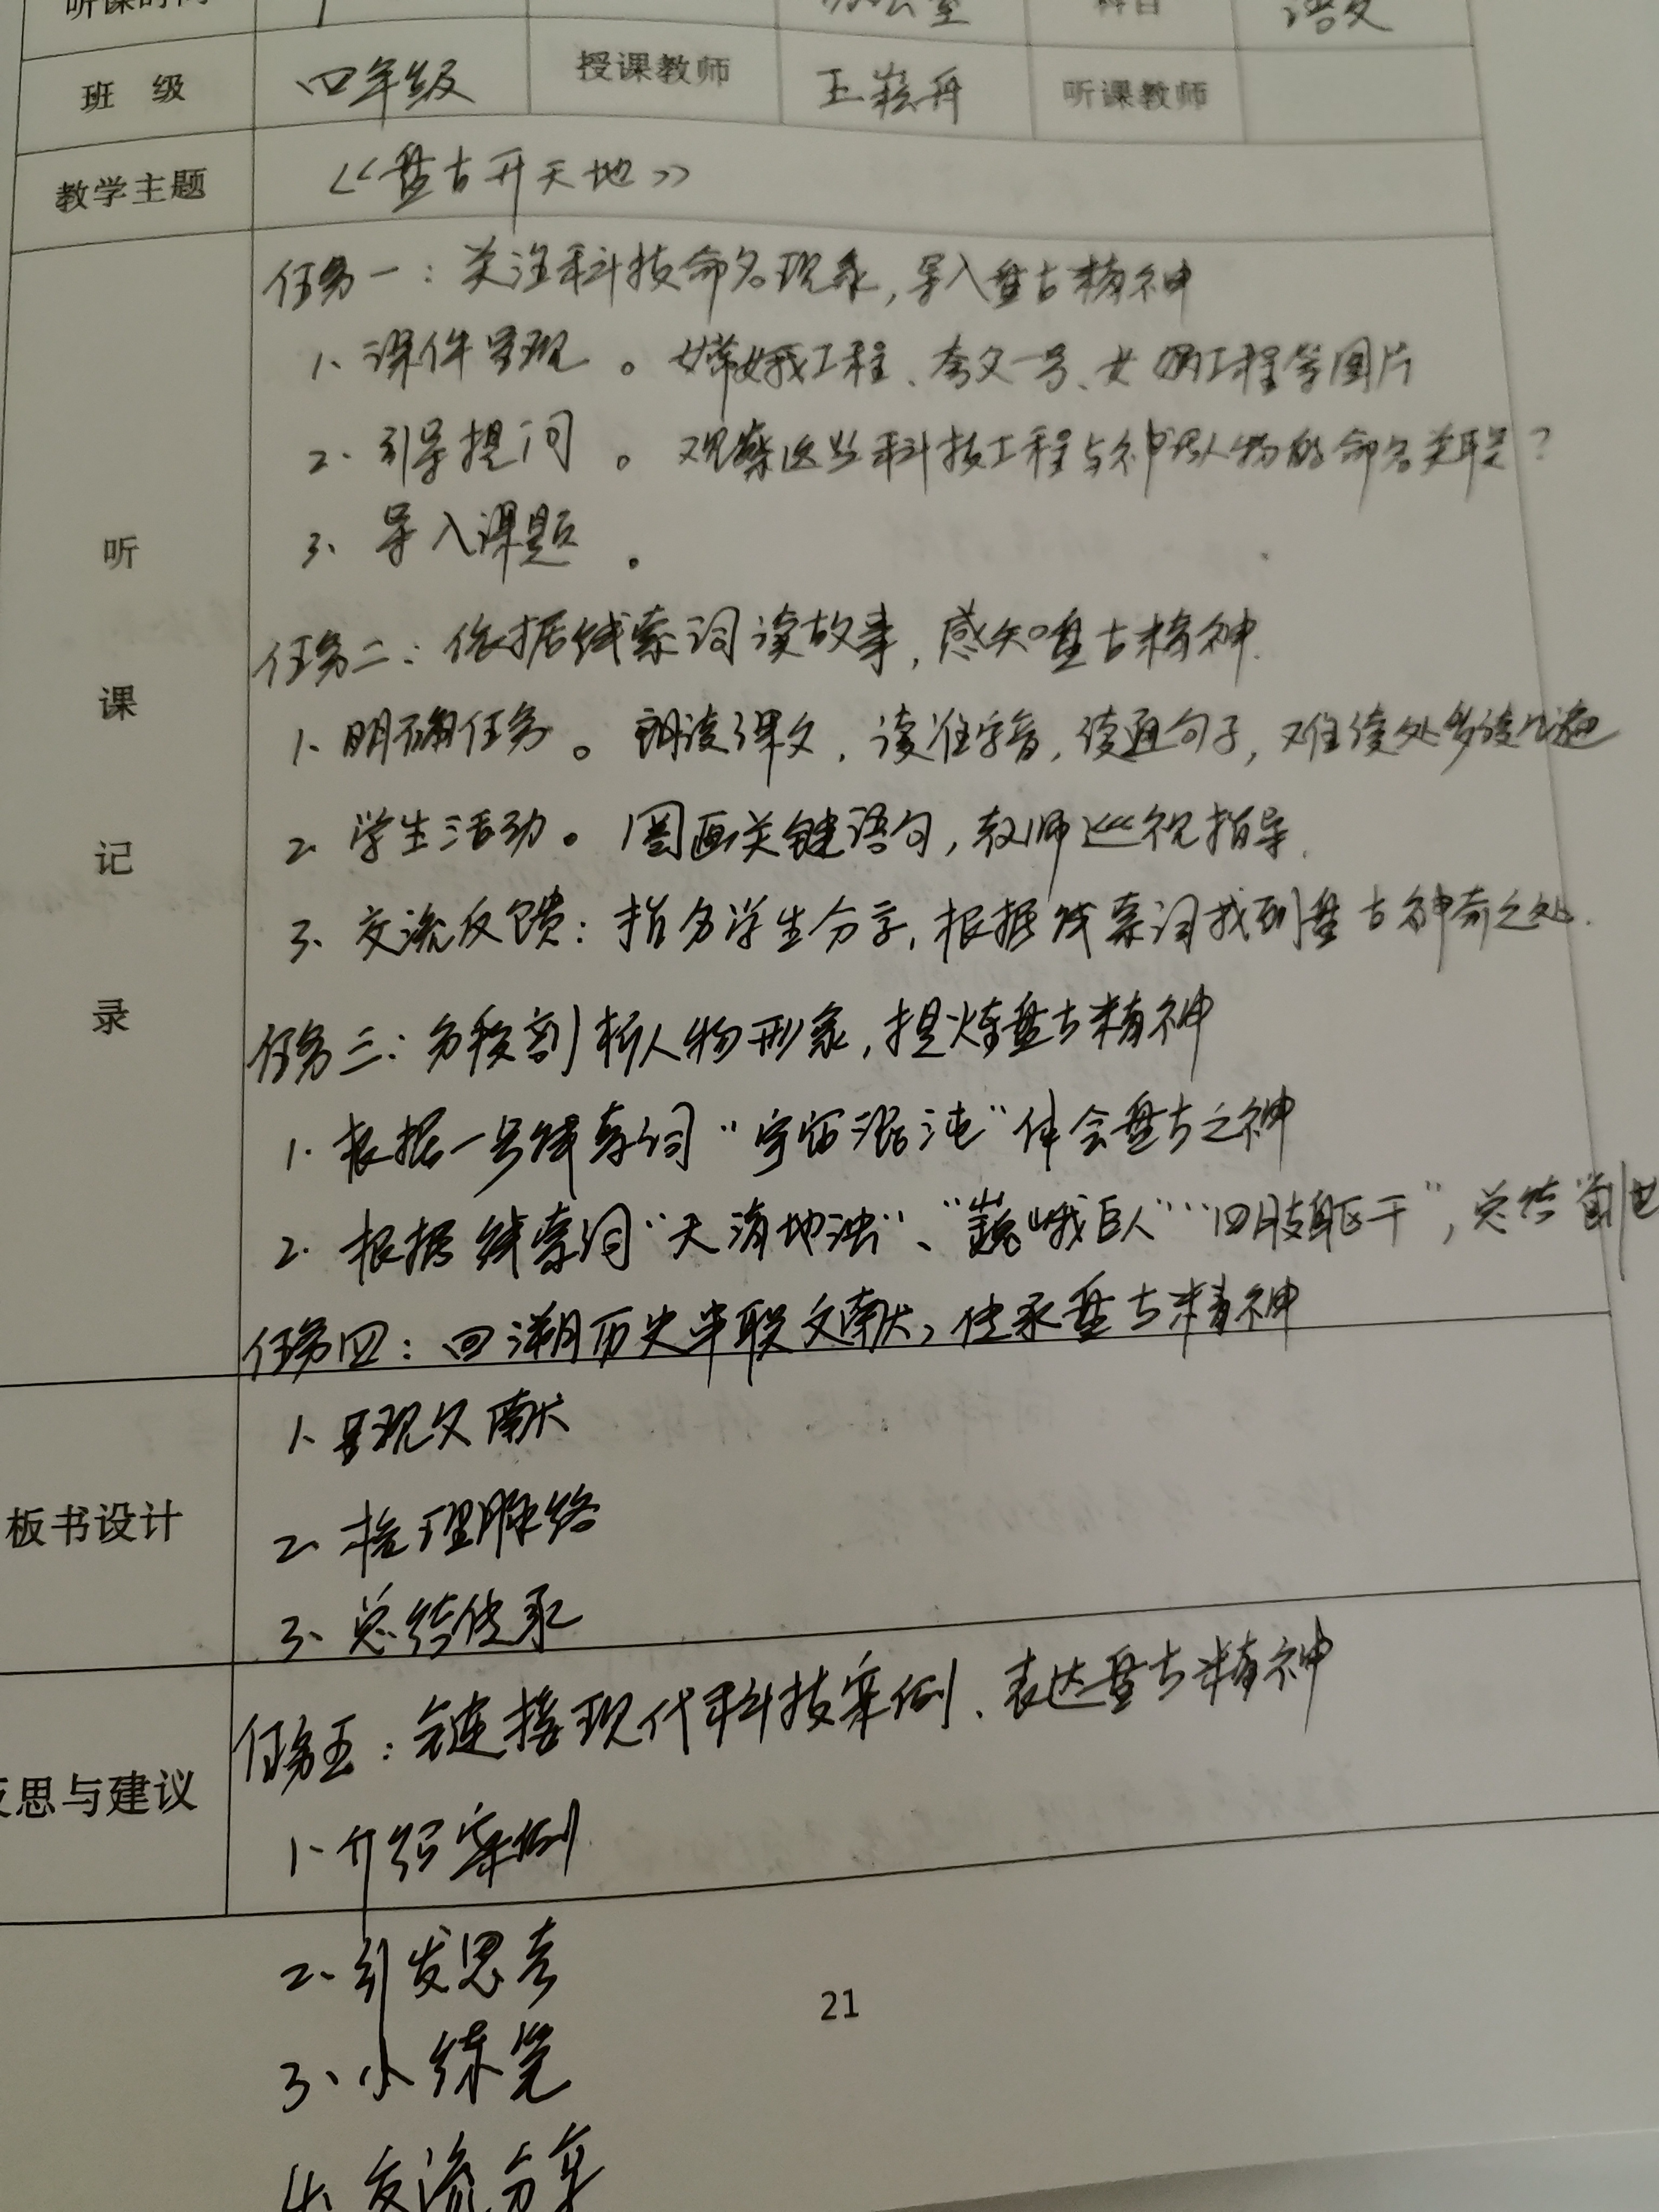 听课时间 办公室 科目 语文
班 级 四年级 授课教师 王崧丹 听课教师
教学主题 《盘古开天地》
听课记录
任务一：关注科技命名现象，导入盘古精神
1、课件呈现。嫦娥工程、夸父一号、女娲工程等图片
2、引导提问。观察这些科技工程与神话人物的命名关联？
3、导入课题。
任务二：依据线索词读故事，感知盘古精神.
1、明确任务。朗读课文，读准字音，读通句子，难读处多读几遍
2、学生活动。圈画关键语句，教师巡视指导.
3、交流反馈：指名学生分享，根据线索词找到盘古神奇之处.
任务三：分段剖析人物形象，提炼盘古精神
1、根据一号线索词“宇宙混沌”体会盘古之神
2、根据线索词“天清地浊”、“巍峨巨人”“四肢躯干”，总结创世
任务四：回溯历史串联文献，传承盘古精神
1、呈现文献
板书设计
2、梳理脉络
3、总结传承
任务五：链接现代科技案例、表达盘古精神
反思与建议
1、介绍案例
2、引发思考
21
3、小练笔
4、交流分享